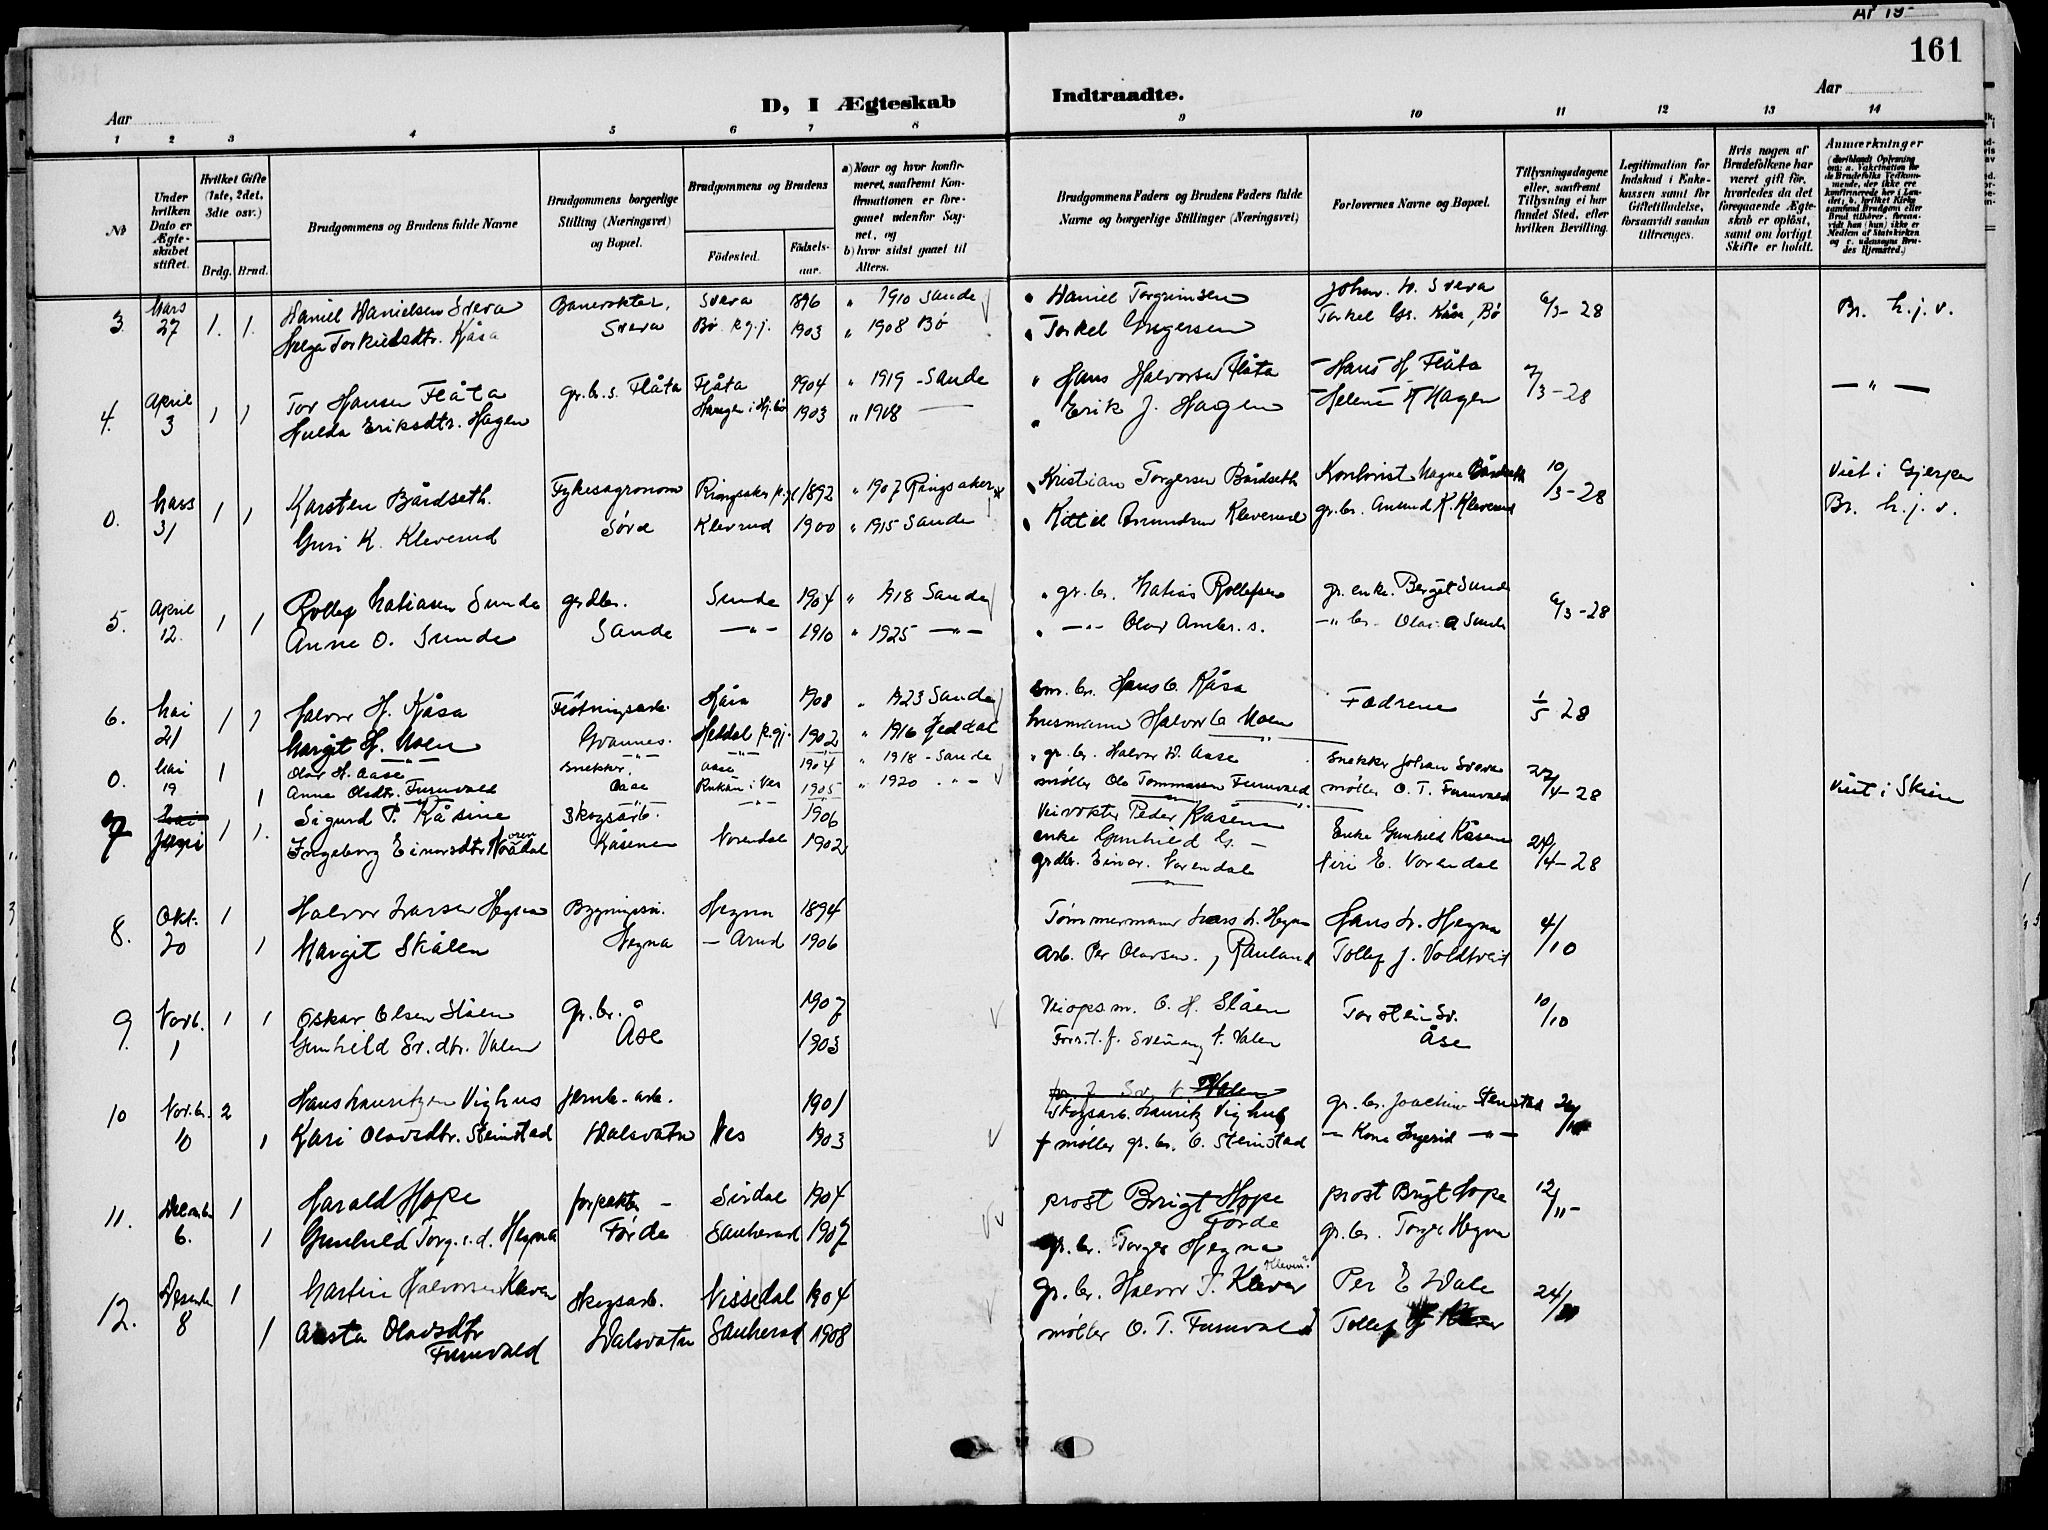 161
D, I Ægteskab Indtraadte.
Aar
Aar
1 2 3 4 5 6 7 8 9 10 11 12 13 14
No
Under hvilken Dato er Ægteskabet stiftet.
Hvilket Gifte (1ste, 2det, 3die osv.)
Brdg. Brud.
Brudgommens og Brudens fulde Navne
Brudgommens borgerlige Stilling (Næringsvei) og Bopæl.
Brudgommens og Brudens
Fødested. Fødselsaar.
a) Naar og hvor konfirmeret, saafremt Konfirmationen er foregaaet udenfor Sognet, og
b) hvor sidst gaaet til Alters.
Brudgommens Faders og Brudens Faders fulde Navne og borgerlige Stillinger (Næringsvei)
Forlovernes Navne og Bopæl.
Tillysningsdagene eller, saafremt Tillysning ei har fundet Sted, efter hvilken Bevilling.
Legitimation for Indskud i Enkekassen samt for Giftetilladelse, forsaavidt saadan tiltrænges.
Hvis nogen af Brudefolkene har været gift før, hvorledes da det foregaaende Ægteskab er opløst, samt om lovligt Skifte er holdt.
Anmærkninger
3. Mars 27 1. 1. Daniel Danielsen Svera Banevokter, Svera 1896 " 1910 Sande " Daniel Torgrimsen Johan D. Svera 6/3-28 Br. h.j.v.
Helga Torkildsdtr. Kåsa Svera Bø p.gj. 1903 " 1908 Bø " Torkel Gregersen Torkel Gr. Kåsa, Bø
4. April 3 1 1 Tor Hansen Flåta gr.br.s. Flåta Flåta 1904 " 1919 - Sande " Hans Halvorsen Flåta - Hans H. Flåta 7/3-28 — " —
Hulda Eriksdtr. Hagen 1903 " 1918 — " Erik J. Hagen - Helene H Hagen
0. Mars 31 1 1 Karsten Bårdseth. Fykesagronom Ringsaker 1892 " 1907 Ringsaker Kristian Torgersen Bårdseth 10/3-28 Viet i Gjerpen
Guri K. Kleverud Sørde Kleverud 1900 " 1915 Sande Kittil Amundsen Kleverud gr.br. Amund K. Kleverud Br. h.j.v.
5. April 12. 1 1 Rollef Matiasen Sunde grdbr. Sunde 1904 " 1918 Sande " gr.br. Matias Rollefsen gr. enke. Berget Sunde 6/3-28
Anne O. Sunde Sande — " — 1910 " 1925 — " — " — " — Olav Ambr.s. — " br. Olav A Sunde
6. Mai 21 1 1 Halvor H. Kåsa Fløtningsarb. Kåsa 1908 " 1923 Sande sm.br. Hans O. Kåsa Fædrene 1/5 28
Margit H. Moen Heddal p.gj. 1902 " 1916 Heddal husmann Halvor O Moen
0. Mai 19 1 Olav H. Aase snekker, Aase 1904 " 1918 - Sande " gr.br. Halvor D. Aase snekker Johan Svera 22/4-28 Viet i Skien
1 Anna Olsdtr. Furuvald Aase Rukan i Nes 1905 " 1920 " møller Ole Tommassen Furuvald møller O. T. Furuvald
7 1 1. Sigurd P. Kåsine Skogsarb. 1906 Veivokter Peder Kåsene
Ingeborg Einarsdtr Kåsenen Norendal 1902 enke Gunhild Enke Gunhild Kåsene 24/4-28
grdbr. Einar. Norendal Siri E. Norendal
8. Okt. 20 1 Halvor Larsen Hegna Hegna 1894 Tømmermann Lars L. Hegna Hans L. Hegna 4/10
1 Margit Skålen Hegna 1906 Arb. Per Olavsen, Rauland Tollef J. Voldtveit
9. Novb. 1 1 1 Oskar Olsen Slåen Gr.br. 1907 Veiops.m. O. H. Slåen Torstein Sv. 10/10
Gunhild Sv.dtr. Valen Åse 1903 Åse
10 Nov.br. 10 2 Hans Lauritzen Vighus Jernb.-arb. 1901 Skogsarb. Lauritz Vighus gr.br. Joachim Stenstad
1 Kari Olavsdtr. Steinstad Dalsvatn Nes 1903 † møller gr.br. O. Steinstad — Kona Ingerid — " —
11. Desember 6. 1 Harald Hope forpakter — Sirdal 1904 prost Brigt Hope prost Brigt Hope 12/11-
Førde
1 Gunhild Torg.s.d. Hegna Førde Sauherad 1907 gr.br. Torger Hegna gr.br. Torger Hegna
12. 8 1 Martin Halvorsen Kleven Skogsarb. Nissedal 1904 gr.br. Halvor T. Kleven Per E Dale
1 Aasta Olavsdtr Furuvald Dalsvatn Sauherad 1908 møller O. T. Furuvald Tollef